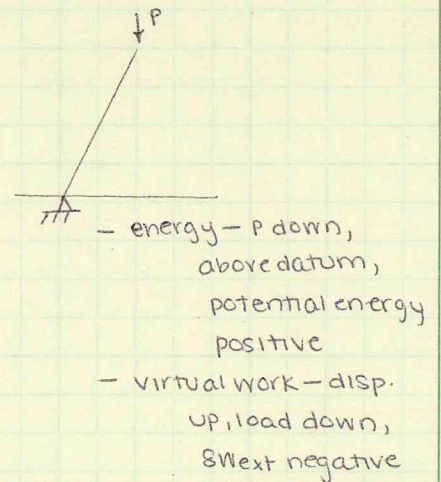 P
- energy - P down,
above datum,
potential energy
positive
- virtual work - disp.
up, load down,
δWext negative